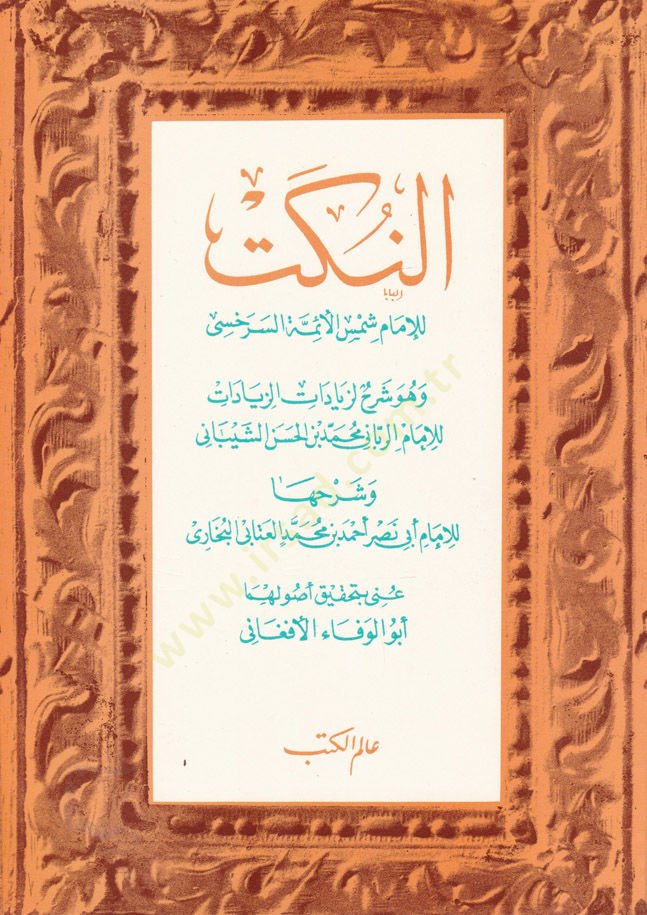 النُكَتْ
البابا
للإمام شمس الأئمة السرخسى
وهو شرح لزيادات الزيادات
للإمام الربانى محمد بن الحسن الشيبانى
وشرحها
للإمام أبى نصر أحمد بن محمد العتابى البخارى
عنى بتحقيق أصولهما
أبو الوفاء الأفغانى
عالم الكتب
www.irsad.com.tr